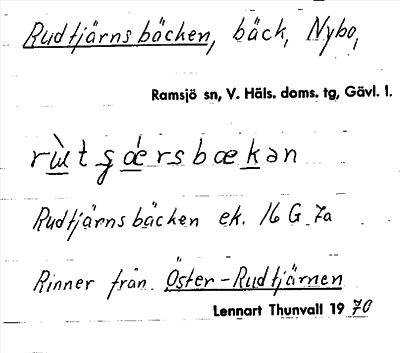 Rudtjärnsbäcken, bäck, Nybo,
Ramsjö sn, V. Häls. doms. tg, Gävl. l.
rɯ̀tʂǽrsbækan
Rudtjärnsbäcken ek. 16 G 7a
Rinner från Öster-Rudtjärnen
Lennart Thunvall 1970